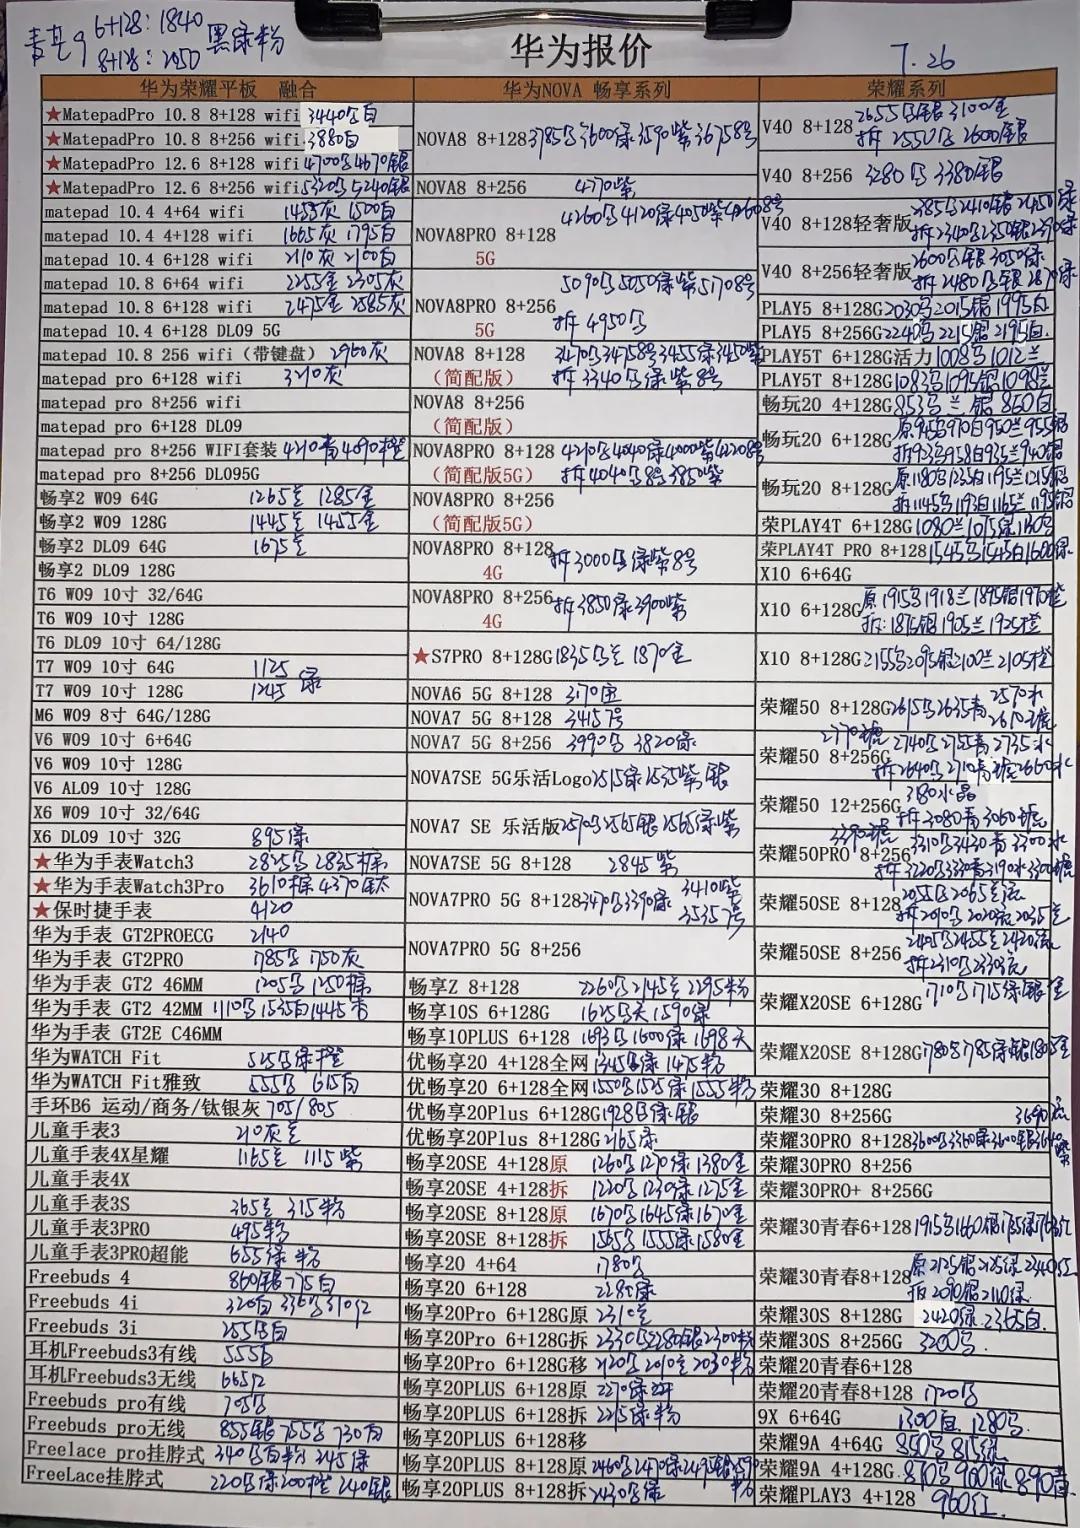 麦芒9 6+128:1840 黑绿粉
8+128:2050
华为报价
7.26
华为荣耀平板 融合
★MatepadPro 10.8 8+128 wifi 3440 白
★MatepadPro 10.8 8+256 wifi 3880白
★MatepadPro 12.6 8+128 wifi 4700 4670银
★MatepadPro 12.6 8+256 wifi 5320 5240银
matepad 10.4 4+64 wifi 1455灰 1500白
matepad 10.4 4+128 wifi 1665灰 1795白
matepad 10.4 6+128 wifi 2110灰 2100白
matepad 10.8 6+64 wifi 2255金 2305灰
matepad 10.8 6+128 wifi 2475金 2585灰
matepad 10.4 6+128 DL09 5G
matepad 10.8 256 wifi（带键盘） 2960灰
matepad pro 6+128 wifi 3210灰
matepad pro 8+256 wifi
matepad pro 6+128 DL09
matepad pro 8+256 WIFI套装 4210青4090橙
matepad pro 8+256 DL095G
畅享2 W09 64G 1265兰 1285金
畅享2 W09 128G 1445兰 1455金
畅享2 DL09 64G 1675兰
畅享2 DL09 128G
T6 W09 10寸 32/64G
T6 W09 10寸 128G
T6 DL09 10寸 64/128G
T7 W09 10寸 64G 1125
T7 W09 10寸 128G 1245 绿
M6 W09 8寸 64G/128G
V6 W09 10寸 6+64G
V6 W09 10寸 128G
V6 AL09 10寸 128G
X6 W09 10寸 32/64G
X6 DL09 10寸 32G 895绿
★华为手表Watch3 2825 2835棕
★华为手表Watch3Pro 3610棕 4370钛
★保时捷手表 4120
华为手表 GT2PROECG 2140
华为手表 GT2PRO 785 750灰
华为手表 GT2 46MM 1205 1250棕
华为手表 GT2 42MM 1110 1535白1445
华为手表 GT2E C46MM
华为WATCH Fit 525 绿橙
华为WATCH Fit雅致 555 615白
手环B6 运动/商务/钛银灰 705/805
儿童手表3 210灰兰
儿童手表4X星耀 1165兰 1115紫
儿童手表4X
儿童手表3S 265兰 315粉
儿童手表3PRO 495粉
儿童手表3PRO超能 655绿粉
Freebuds 4 860银775白
Freebuds 4i 320白 330 310红
Freebuds 3i 255 白
耳机Freebuds3有线 555
耳机Freebuds3无线 665红
Freebuds pro有线 705
Freebuds pro无线 855银755 730白
Freelace pro挂脖式 340 白粉 245绿
FreeLace挂脖式 220 绿200橙 240银
华为NOVA 畅享系列
NOVA8 8+128 3785 3600绿3590紫36758号
NOVA8 8+256 4270紫
NOVA8PRO 8+128 4260 4120绿4050紫42608号
5G
NOVA8PRO 8+256 5090 5050绿紫51708号
5G 拆4950
NOVA8 8+128 3470 34758号3455绿3450紫
（简配版） 拆3340 绿紫8号
NOVA8 8+256
（简配版）
NOVA8PRO 8+128 4210 4040绿4000紫42208号
（简配版5G） 拆4040 8号3850紫
NOVA8PRO 8+256
（简配版5G）
NOVA8PRO 8+128 拆3000 绿紫8号
4G
NOVA8PRO 8+256 拆3850绿3900紫
4G
★S7PRO 8+128G 1835 兰 1870金
NOVA6 5G 8+128 3170
NOVA7 5G 8+128 3415 7号
NOVA7 5G 8+256 3990 3820绿
NOVA7SE 5G乐活Logo 2515绿2535紫银
NOVA7 SE 乐活版 2570 2565银2565绿紫
NOVA7SE 5G 8+128 2845紫
NOVA7PRO 5G 8+128 3470 3390绿 3410紫
3535 7号
NOVA7PRO 5G 8+256
畅享Z 8+128 2260 2145兰2295粉
畅享10S 6+128G 1625 天1590绿
畅享10PLUS 6+128 1693 1600绿1698天
优畅享20 4+128全网 1345 绿1475粉
优畅享20 6+128全网 1550 1525绿1555粉
优畅享20Plus 6+128G 1928 绿银
优畅享20Plus 8+128G 2165绿
畅享20SE 4+128原 1260 1270绿1380金
畅享20SE 4+128拆 1220 1230绿1275金
畅享20SE 8+128原 1670 1645绿1670金
畅享20SE 8+128拆 1565 1555绿1580金
畅享20 4+64 1780
畅享20 6+128 2280绿
畅享20Pro 6+128G原 2310兰
畅享20Pro 6+128G拆 2330 兰2280银2300粉
畅享20Pro 6+128G移 2120 2010兰2030粉
畅享20PLUS 6+128原 2270绿
畅享20PLUS 6+128拆 2215绿粉
畅享20PLUS 6+128移
畅享20PLUS 8+128原 2460 2470绿2475银2590粉
畅享20PLUS 8+128拆 2430 绿
荣耀系列
V40 8+128 2655 银3100金
拆2550 2600银
V40 8+256 3280 3380银
V40 8+128轻奢版 2385 2410银2450绿
拆2340 2350银2390绿
V40 8+256轻奢版 2600 银3050绿
拆2480 银2870绿
PLAY5 8+128G 2030 2015银1995白
PLAY5 8+256G 2240 2215银2195白
PLAY5T 6+128G活力 1008 1012兰
PLAY5T 8+128G 1083 1095银1098兰
畅玩20 4+128G 853 兰银860白
畅玩20 6+128G 原945 970白950兰955银
拆923 958白935兰940银
畅玩20 8+128G 原1180 1235白1195兰1215银
拆1145 1193白1165兰1195银
荣PLAY4T 6+128G 1080兰1075绿1130
荣PLAY4T PRO 8+128 1545 1545白1600绿
X10 6+64G
X10 6+128G 原1915 1918兰1895银1970橙
拆:1875银1905兰1925橙
X10 8+128G 2155 2095银2100兰2105橙
荣耀50 8+128G 2615 2635青2570水
2610琥
荣耀50 8+256G 2770琥 2740 2755青2735水
拆2640 2710青琥2660水
荣耀50 12+256G 3180水晶
拆3080青3060琥
荣耀50PRO 8+256 3390琥 3310 3430青3300水
拆3220 3330青3190水3300琥
荣耀50SE 8+128 2055 2065兰流
拆2010 2020流2035兰
荣耀50SE 8+256 2405 2455兰2420流
拆2310 2330流
荣耀X20SE 6+128G 1710 1715绿银金
荣耀X20SE 8+128G 1780 1785绿银1805金
荣耀30 8+128G
荣耀30 8+256G 3690流
荣耀30PRO 8+128 3600 3360绿3600银3640紫
荣耀30PRO 8+256
荣耀30PRO+ 8+256G
荣耀30青春6+128 1915 1660银1735绿1763红
荣耀30青春8+128 原2125银2125绿2340红
拆2090银2110绿
荣耀30S 8+128G 2420绿2365白
荣耀30S 8+256G 3200
荣耀20青春6+128
荣耀20青春8+128 1720
9X 6+64G 1300 1280
荣耀9A 4+64G 850 815绿
荣耀9A 4+128G 870 900绿890青
荣耀PLAY3 4+128 960红